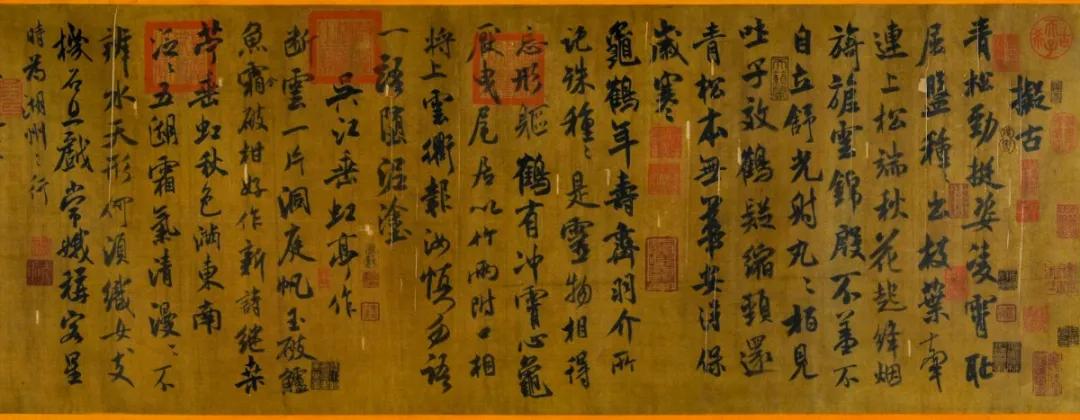 擬古
青松勁挺姿凌霄恥
屈盤種〻出枝葉牽
連上松端秋花起絳煙
旖旎雲錦殷不羞不
自立舒光射丸〻柏見
吐子效鶴疑縮頸還
青松本無華安得保
歲寒
龜鶴年壽齊羽介所
託殊種〻是靈物相得
忘形軀鶴有冲霄心龜
厭曳尾居以竹兩附口相
將上雲衢報汝慎勿語
一語墮泥塗
吳江垂虹亭作
斷雲一片洞庭帆玉破鱸
魚霜破柑好作新詩繼桑
苧垂虹秋色滿東南
泛〻五湖霜氣清漫〻不
辨水天形何須織女支
機石且戲常娥稱客星
時為湖州之行